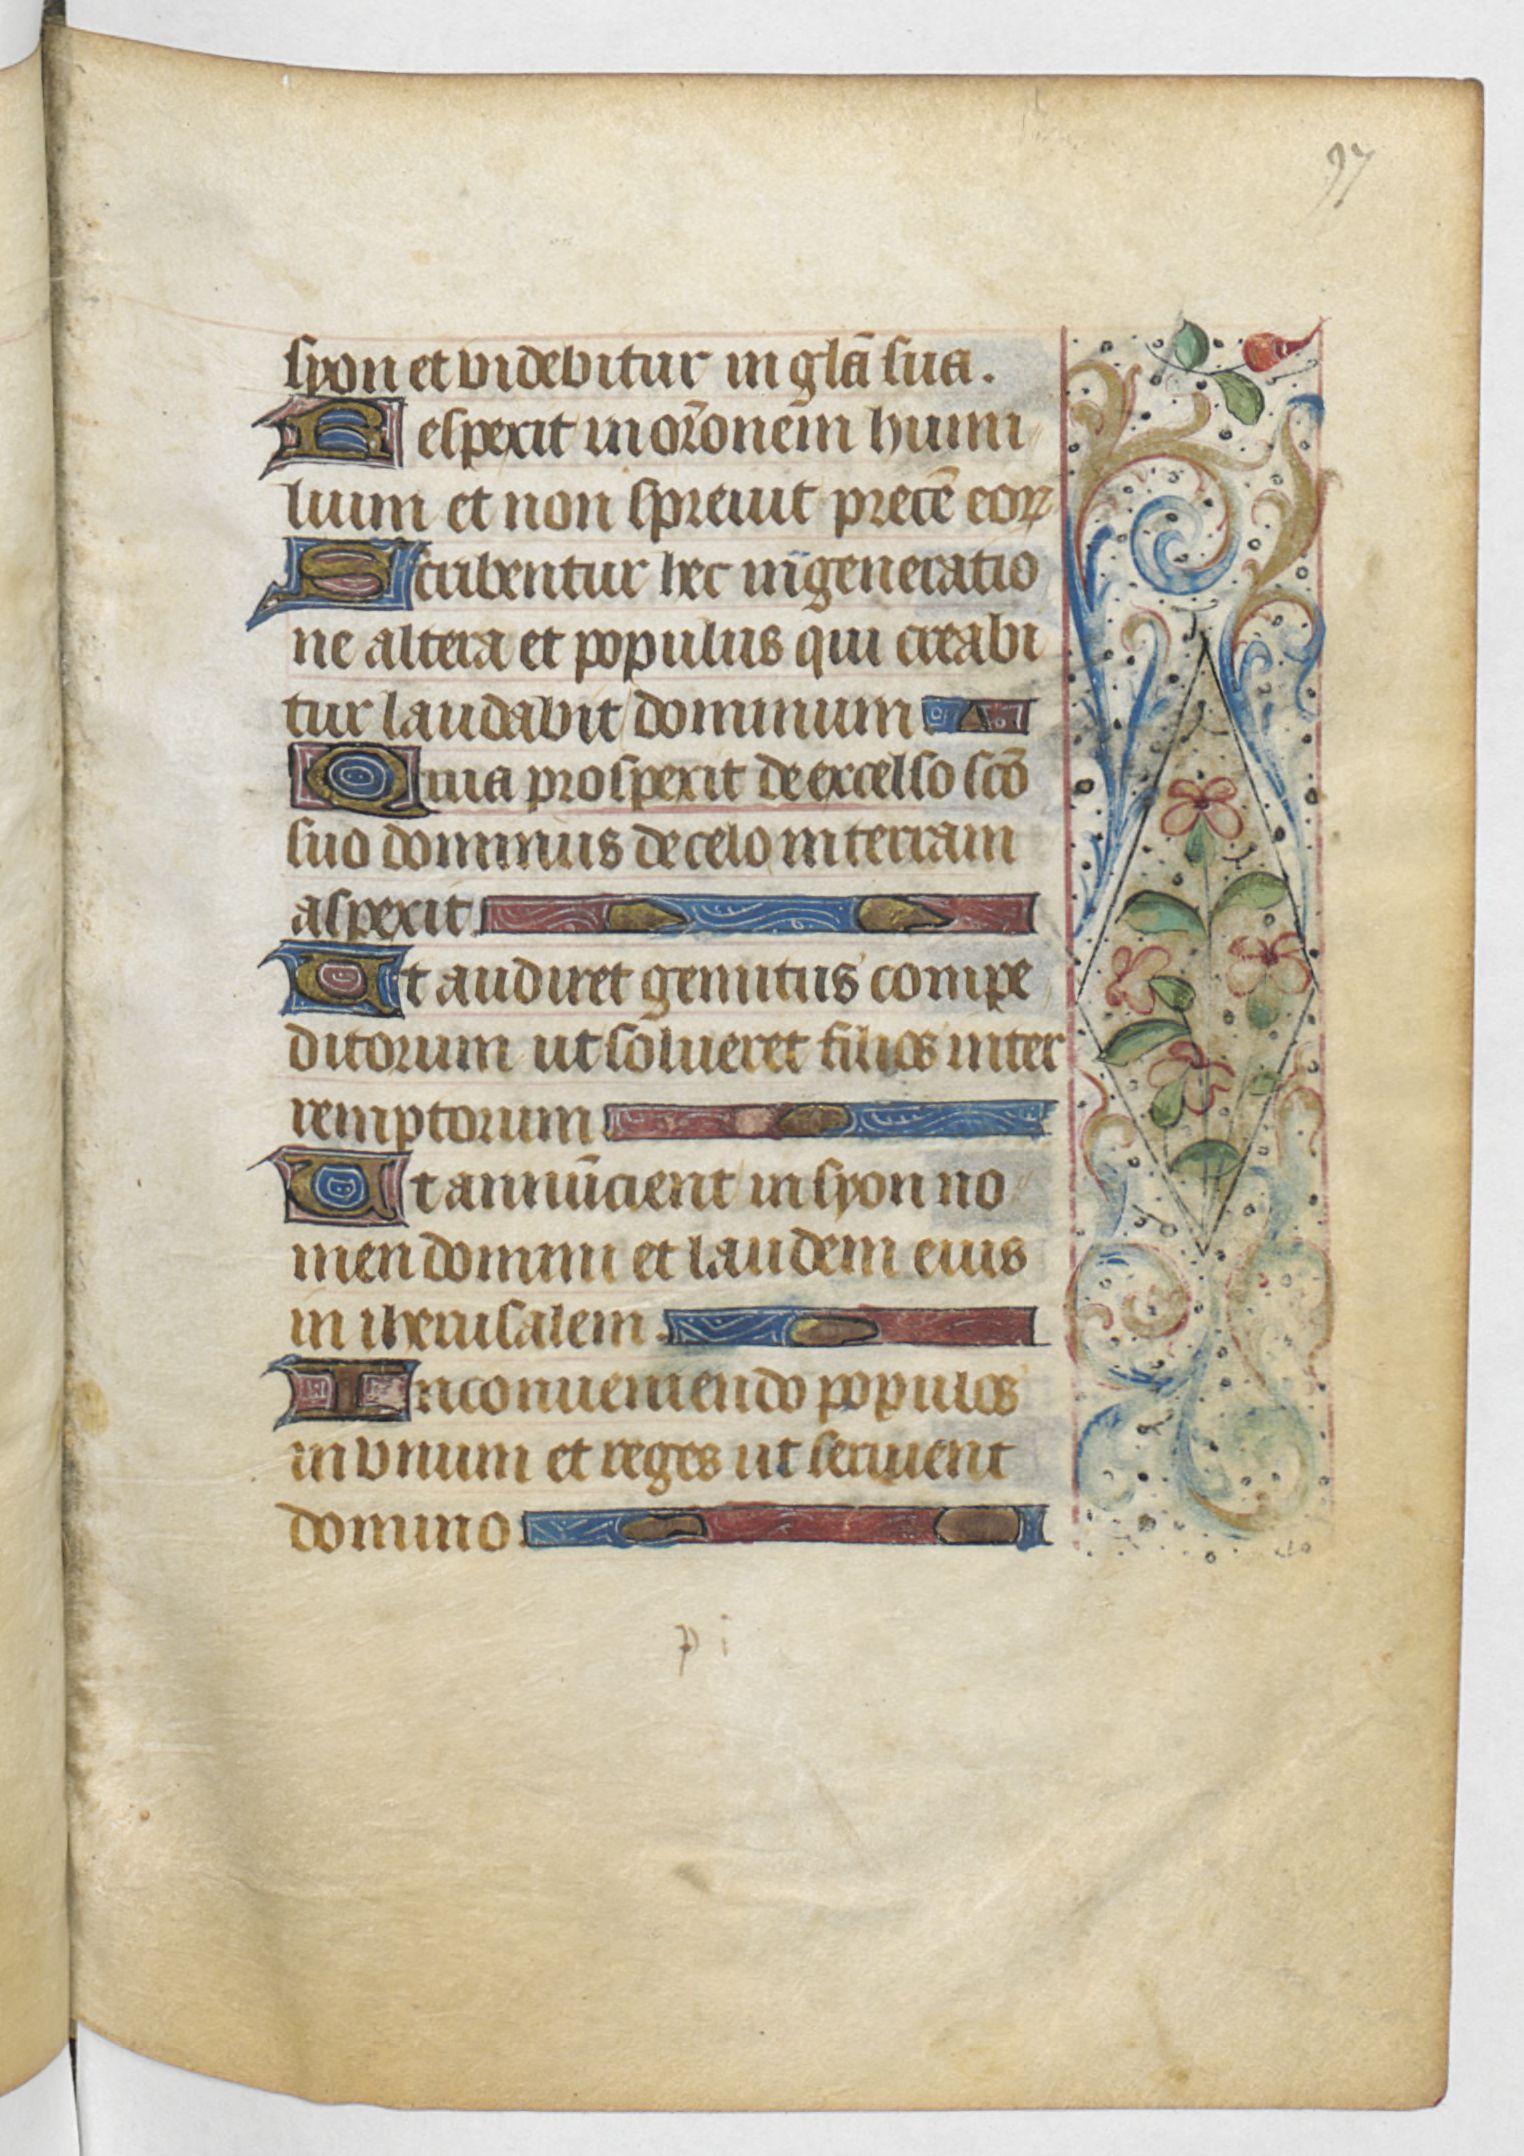 97
syon et videbitur in glã sua.
Respexit in orõnem humi
lium et non spreuit precẽ eoꝝ
Scribentur hec in generatio
ne altera et populus qui creabi
tur laudabit dominum
Quia prospexit de excelso scõ
suo dominus de celo in terram
aspexit.
Ut audiret gemitus compe
ditorum ut solueret filios inter
remptorum
Ut annũcient in syon no
men domini et laudem eius
in iherusalem.
In conueniendo populos
in vnum et reges ut seruient
domino.
p i